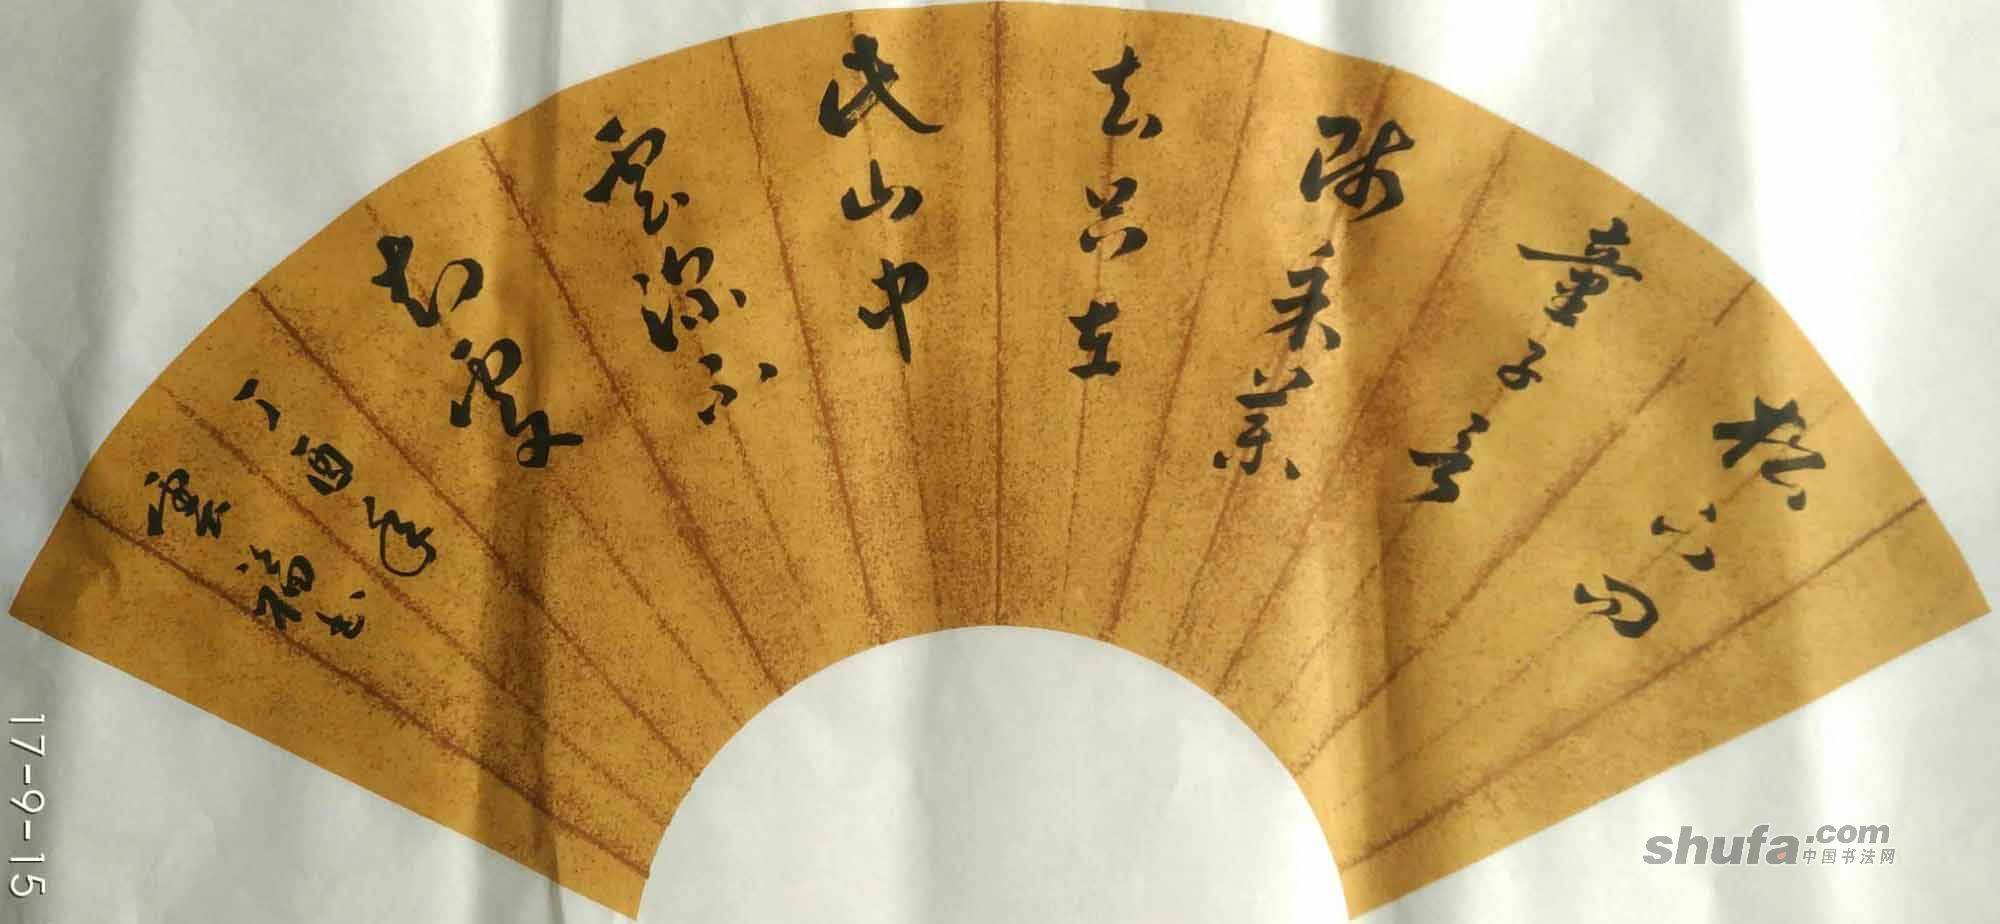 松下问
童子言
师采藥
去只在
此山中
雲深不
知處
丁酉年
福书
17-9-15
shufa.com
中国书法网